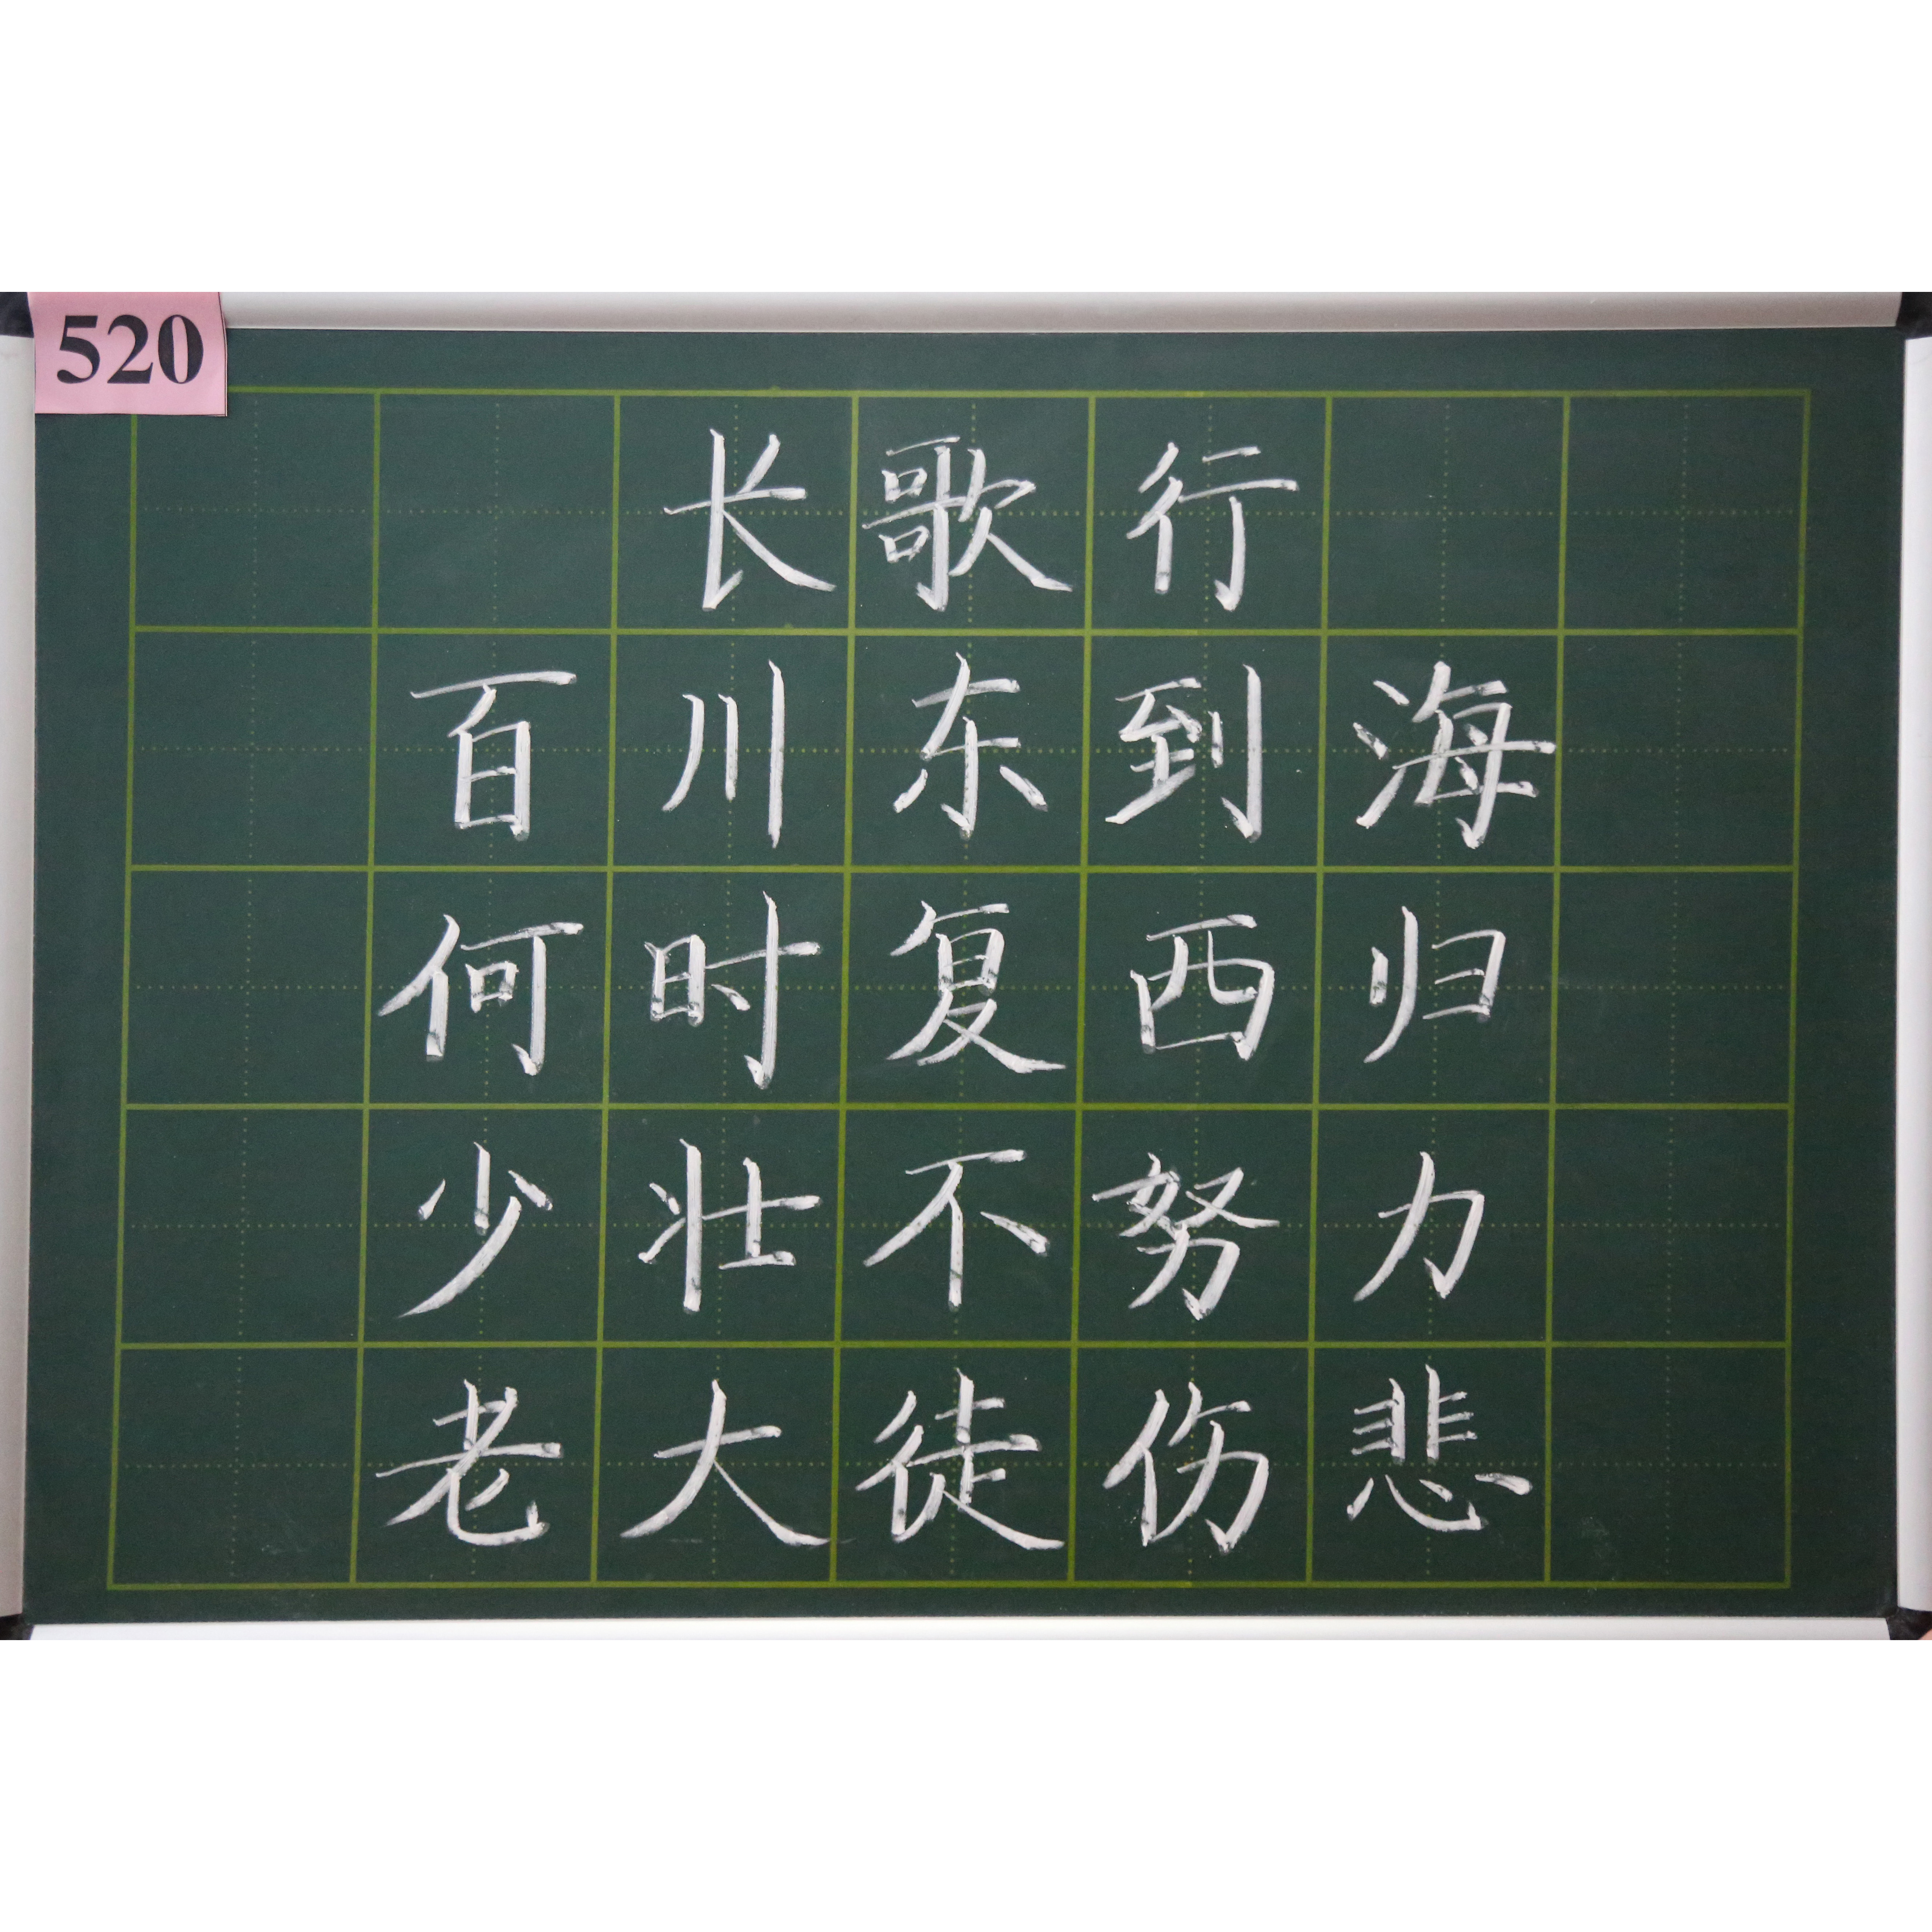 520
长歌行
百川东到海
何时复西归
少壮不努力
老大徒伤悲